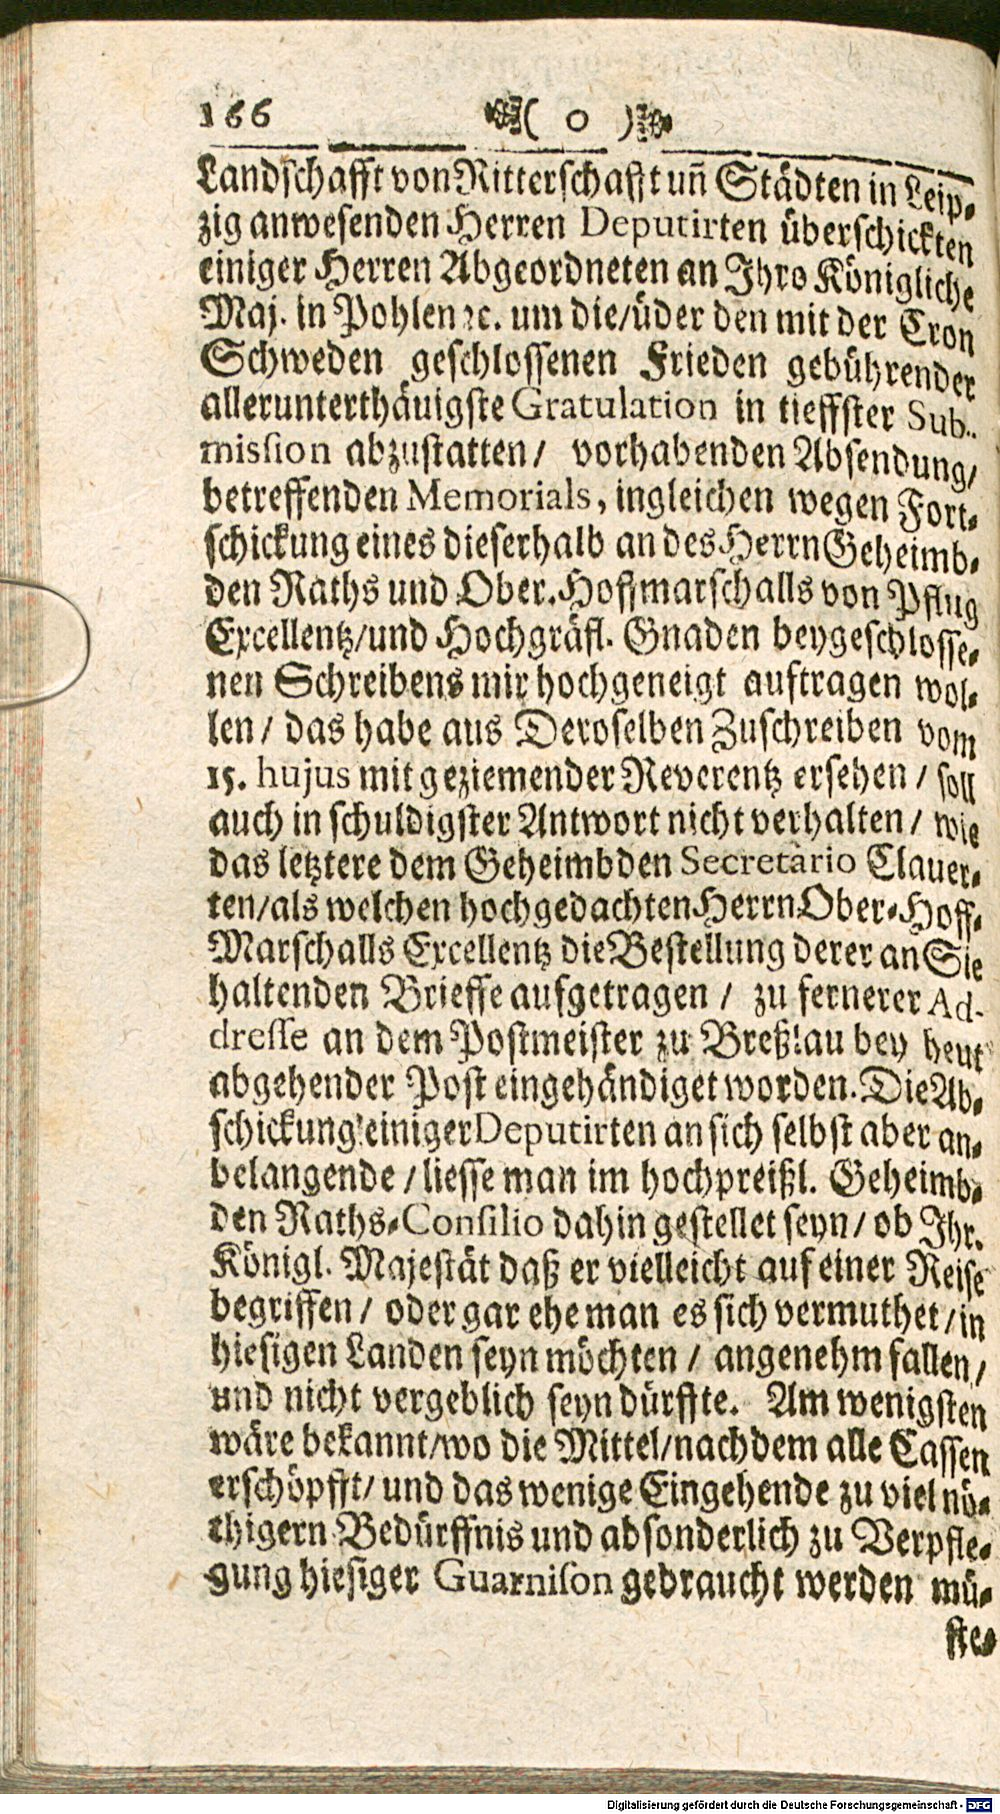 166 ( 0 )
Landschafft von Ritterschafft uñ Städten in Leip-
zig anwesenden Herren Deputirten überschickten
einiger Herren Abgeordneten an Ihro Königliche
Maj. in Pohlen ꝛc. um die/üder den mit der Cron
Schweden geschlossenen Frieden gebührender
allerunterthäuigste Gratulation in tieffster Sub-
mission abzustatten/ vorhabenden Absendung/
betreffenden Memorials, ingleichen wegen Fort-
schickung eines dieserhalb an des Herrn Geheimb-
den Raths und Ober-Hoffmarschalls von Pflug
Excellentz/und Hochgräfl. Gnaden beygeschlosse-
nen Schreibens mir hochgeneigt auftragen wol-
len/ das habe aus Deroselben Zuschreiben vom
15. hujus mit geziemender Reverentz ersehen/ soll
auch in schuldigster Antwort nicht verhalten/ wie
das letztere dem Geheimbden Secretario Clauer-
ten/als welchen hochgedachten Herrn Ober-Hoff-
Marschalls Excellentz die Bestellung derer an Sie
haltenden Brieffe aufgetragen/ zu fernerer Ad-
dresse an dem Postmeister zu Breßlau bey heut
abgehender Post eingehändiget worden. Die Ab-
schickung einiger Deputirten an sich selbst aber an-
belangende/liesse man im hochpreißl. Geheimb-
den Raths-Consilio dahin gestellet seyn/ ob Ihr.
Königl. Majestät daß er vielleicht auf einer Reise
begriffen/ oder gar ehe man es sich vermuthet/in
hiesigen Landen seyn möchten/ angenehm fallen/
und nicht vergeblich seyn dürffte. Am wenigsten
wäre bekannt/wo die Mittel/nachdem alle Cassen
erschöpfft/ und das wenige Eingehende zu viel nö-
thigern Bedürffnis und absonderlich zu Verpfle-
gung hiesiger Guarnison gebraucht werden mü-
ste-
Digitalisierung gefördert durch die Deutsche Forschungsgemeinschaft - DFG